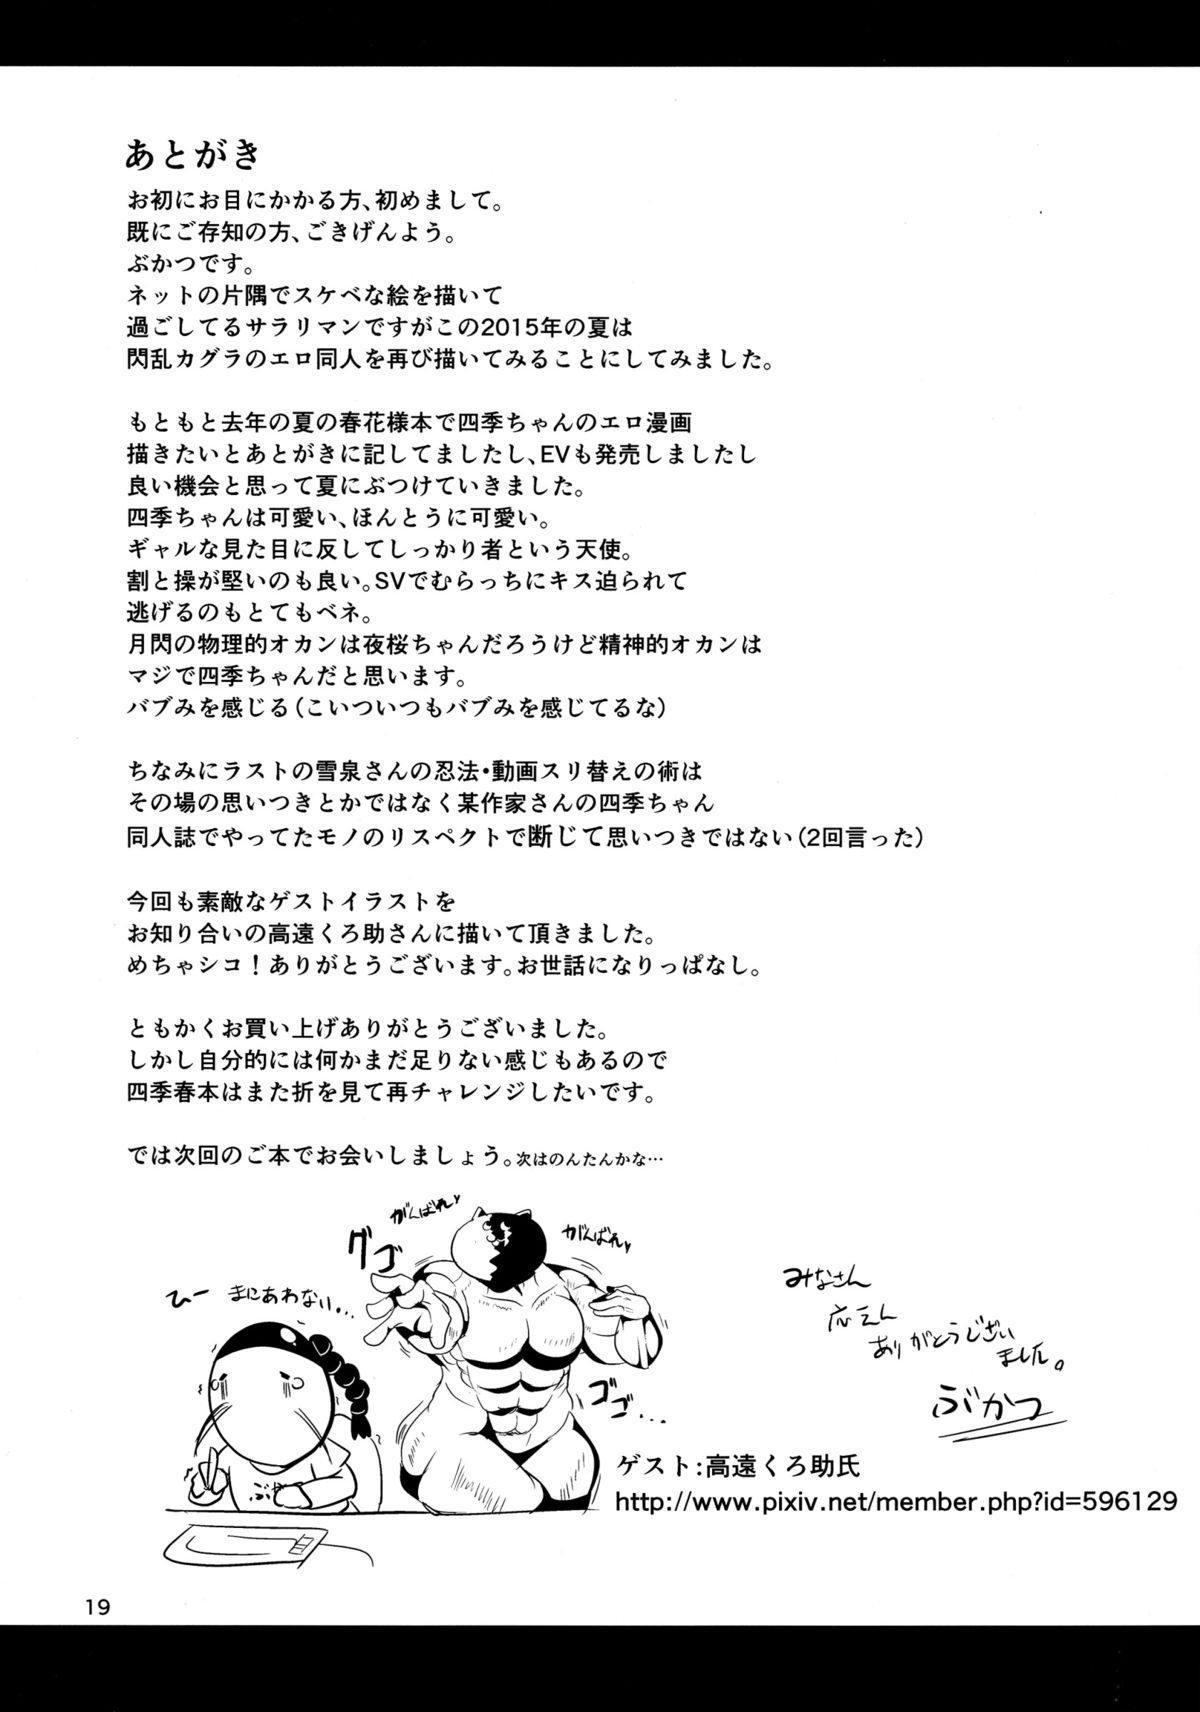 あとがき
お初にお目にかかる方、初めまして。
既にご存知の方、ごきげんよう。
ぶかつです。
ネットの片隅でスケベな絵を描いて
過ごしてるサラリマンですがこの2015年の夏は
閃乱カグラのエロ同人を再び描いてみることにしてみました。
もともと去年の夏の春花様本で四季ちゃんのエロ漫画
描きたいとあとがきに記してましたし、EVも発売しましたし
良い機会と思って夏にぶつけていきました。
四季ちゃんは可愛い、ほんとうに可愛い。
ギャルな見た目に反してしっかり者という天使。
割と操が堅いのも良い。SVでむらっちにキス迫られて
逃げるのもとてもベネ。
月閃の物理的オカンは夜桜ちゃんだろうけど精神的オカンは
マジで四季ちゃんだと思います。
バブみを感じる(こいついつもバブみを感じてるな)
ちなみにラストの雪泉さんの忍法・動画スリ替えの術は
その場の思いつきとかではなく某作家さんの四季ちゃん
同人誌でやってたモノのリスペクトで断じて思いつきではない(2回言った)
今回も素敵なゲストイラストを
お知り合いの高遠くろ助さんに描いて頂きました。
めちゃシコ!ありがとうございます。お世話になりっぱなし。
ともかくお買い上げありがとうございました。
しかし自分的には何かまだ足りない感じもあるので
四季春本はまた折を見て再チャレンジしたいです。
では次回のご本でお会いしましょう。次はのんたんかな…
がんばれ♥
がんばれ♥
グゴ
ひー まにあわない...
ゴゴ...
ぶ
みなさん
応えん
ありがとうござい
ました。
ぶかつ
ゲスト:高遠くろ助氏
http://www.pixiv.net/member.php?id=596129
19